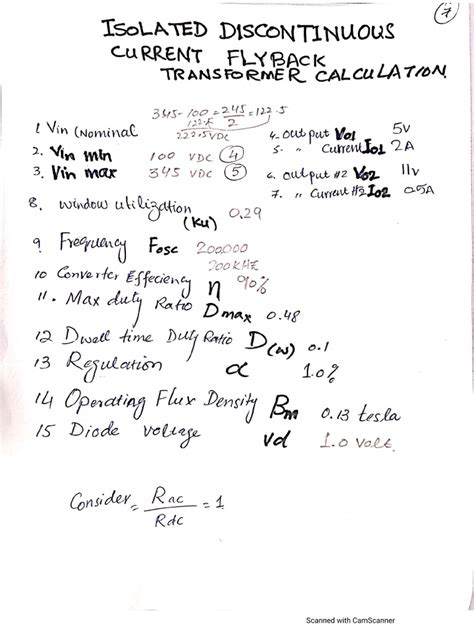 7
ISOLATED DISCONTINUOUS
CURRENT FLYBACK
TRANSFORMER CALCULATION
345-100 = 245/2 = 122.5
1 Vin (Nominal 222.5 VDC
2. Vin min 100 VDC (4)
3. Vin max 345 VDC (5)
4- output Vo1 5V
5- " Current Io1 2A
6. output #2 Vo2 11v
7. " Current #2 Io2 0.5A
8. window utilization (Ku) 0.29
9. Frequency Fosc 200,000
200 kHz
10 Converter Effeciency η 90%
11. Max duty Ratio Dmax 0.48
12 Dwell time Duty Ratio D(w) 0.1
13 Regulation α 1.0%
14 Operating Flux Density Bm 0.13 tesla
15 Diode voltage Vd 1.0 volt.
Consider = Rac/Rdc = 1
Scanned with CamScanner